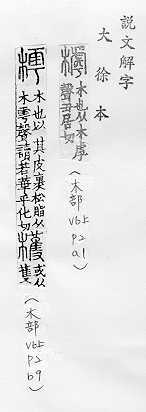 說文解字
大徐本
㯉 木也从木虖
聲丑居切
(木部 v6上 p2 a1)
樗 木也以其皮裹松脂从
木雩聲讀若華乎化切
檴 或从
蒦
(木部 v6上 p2 b9)